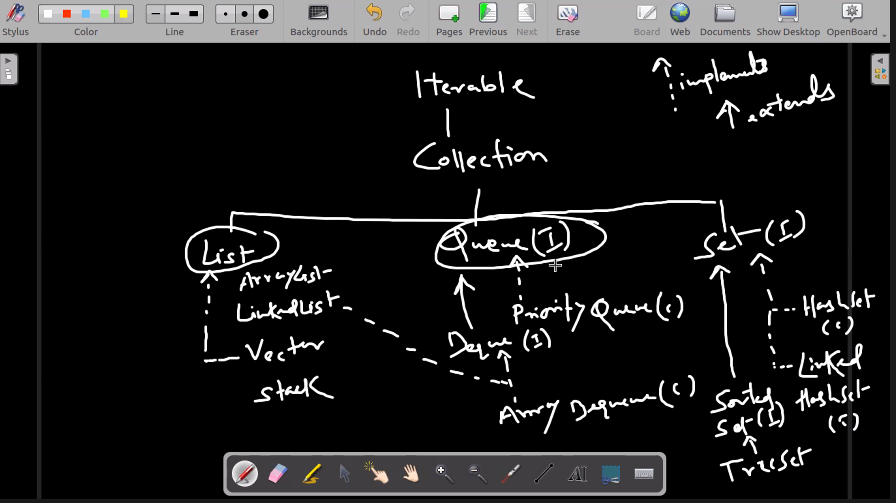 Stylus
Color
Line
Eraser
Backgrounds
Undo
Redo
Pages
Previous
Next
Erase
Board
Web
Documents
Show Desktop
OpenBoard
Iterable
implements
extends
Collection
List
Queue (I)
Set (I)
ArrayList
LinkedList
Vector
stack
Priority Queue (C)
Deque (I)
Array Dequeue (C)
HashSet
(C)
Linked
HashSet
(C)
Sorted
Set (I)
TreeSet
AI